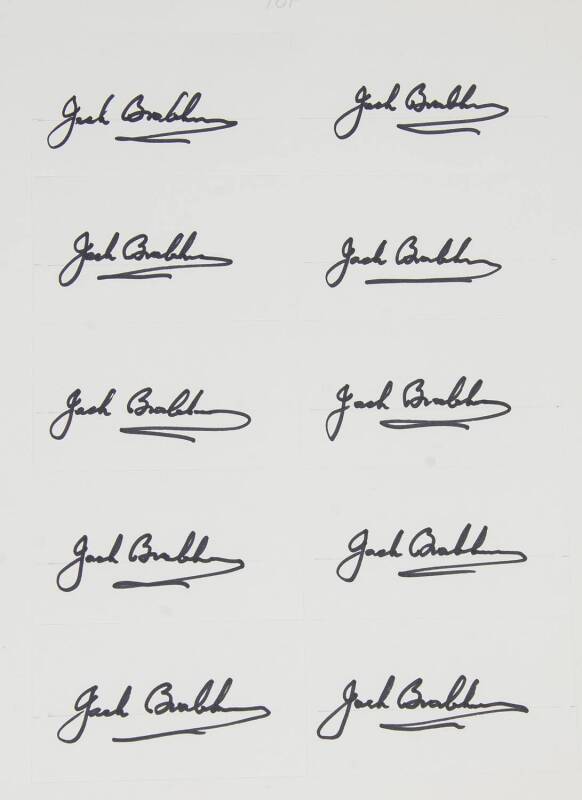 Jack Brabham Jack Brabham
Jack Brabham Jack Brabham
Jack Brabham Jack Brabham
Jack Brabham Jack Brabham
Jack Brabham Jack Brabham